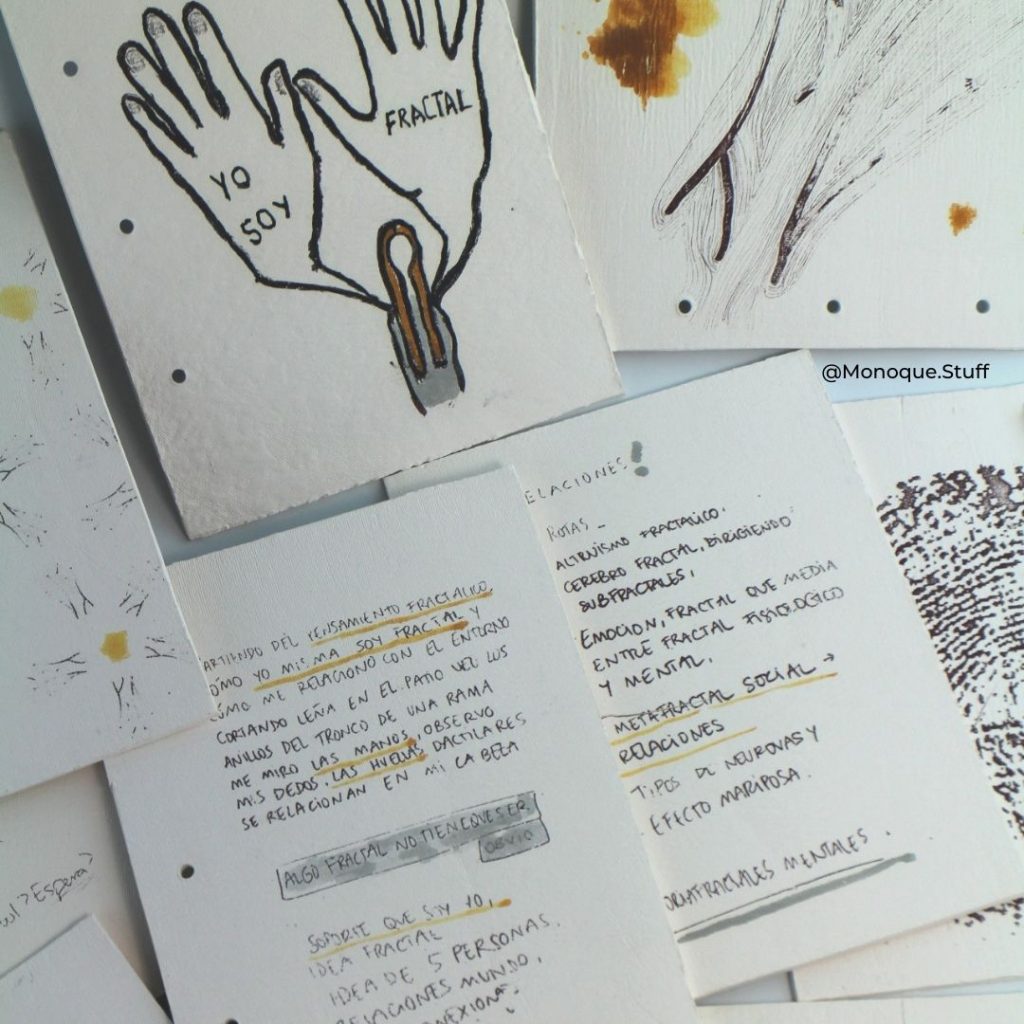 YO
SOY
FRACTAL
@Monoque.Stuff
ELACIONES!
ROTAS -
ALTRUISMO FRACTALICO.
CEREBRO FRACTAL, DIRIGIENDO
SUBFRACTALES.
EMOCION, FRACTAL QUE MEDIA
ENTRE FRACTAL FISIOLOGICO
Y MENTAL.
METAFRACTAL SOCIAL →
RELACIONES
TIPOS DE NEURONAS Y
EFECTO MARIPOSA.
FRACTALES MENTALES.
ARTIENDO DEL PENSAMIENTO FRACTALICO,
ÓMO YO MISMA SOY FRACTAL Y
CÓMO ME RELACIONO CON EL ENTORNO
CORTANDO LEÑA EN EL PATIO VEO LOS
ANILLOS DEL TRONCO DE UNA RAMA
ME MIRO LAS MANOS, OBSERVO
MIS DEDOS, LAS HUELLAS DACTILARES
SE RELACIONAN EN MI CABEZA
ALGO FRACTAL NO TIENE QUE SER
OBVIO
SOPORTE QUE SOY YO,
IDEA FRACTAL
IDEA DE 5 PERSONAS.
RELACIONES MUNDO,
ONEXION
? Espera)